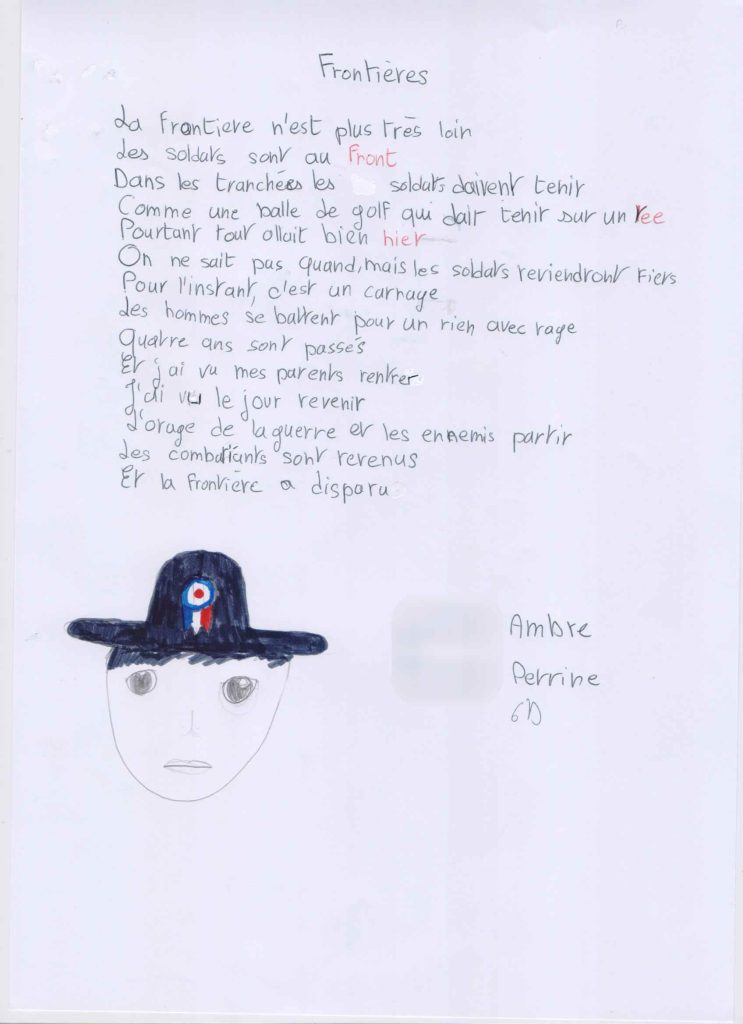 Frontières
La frontiere n'est plus très loin
Les soldats sont au Front
Dans les tranchées les soldats doivent tenir
Comme une balle de golf qui doit tenir sur un tee
Pourtant tout allait bien hier
On ne sait pas quand, mais les soldats reviendront fiers
Pour l'instant, c'est un carnage
Les hommes se battent pour un rien avec rage
Quatre ans sont passés
Et j'ai vu mes parents rentrer
J'ai vu le jour revenir
L'orage de la guerre et les ennemis partir
Les combattants sont revenus
Et la frontière a disparu
Ambre
Perrine
6D